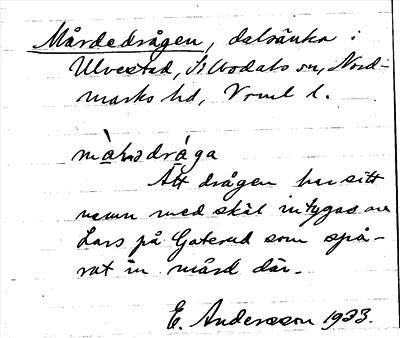 Mårdedrågen, dalsänka i
Ulvestad, Silbodals sn, Nord-
marks hd, Vrml l.
Att drågen har sitt
namn med skäl intygas av
Lars på Gaterud som spå-
rat in mård där.
E. Andersson 1933.